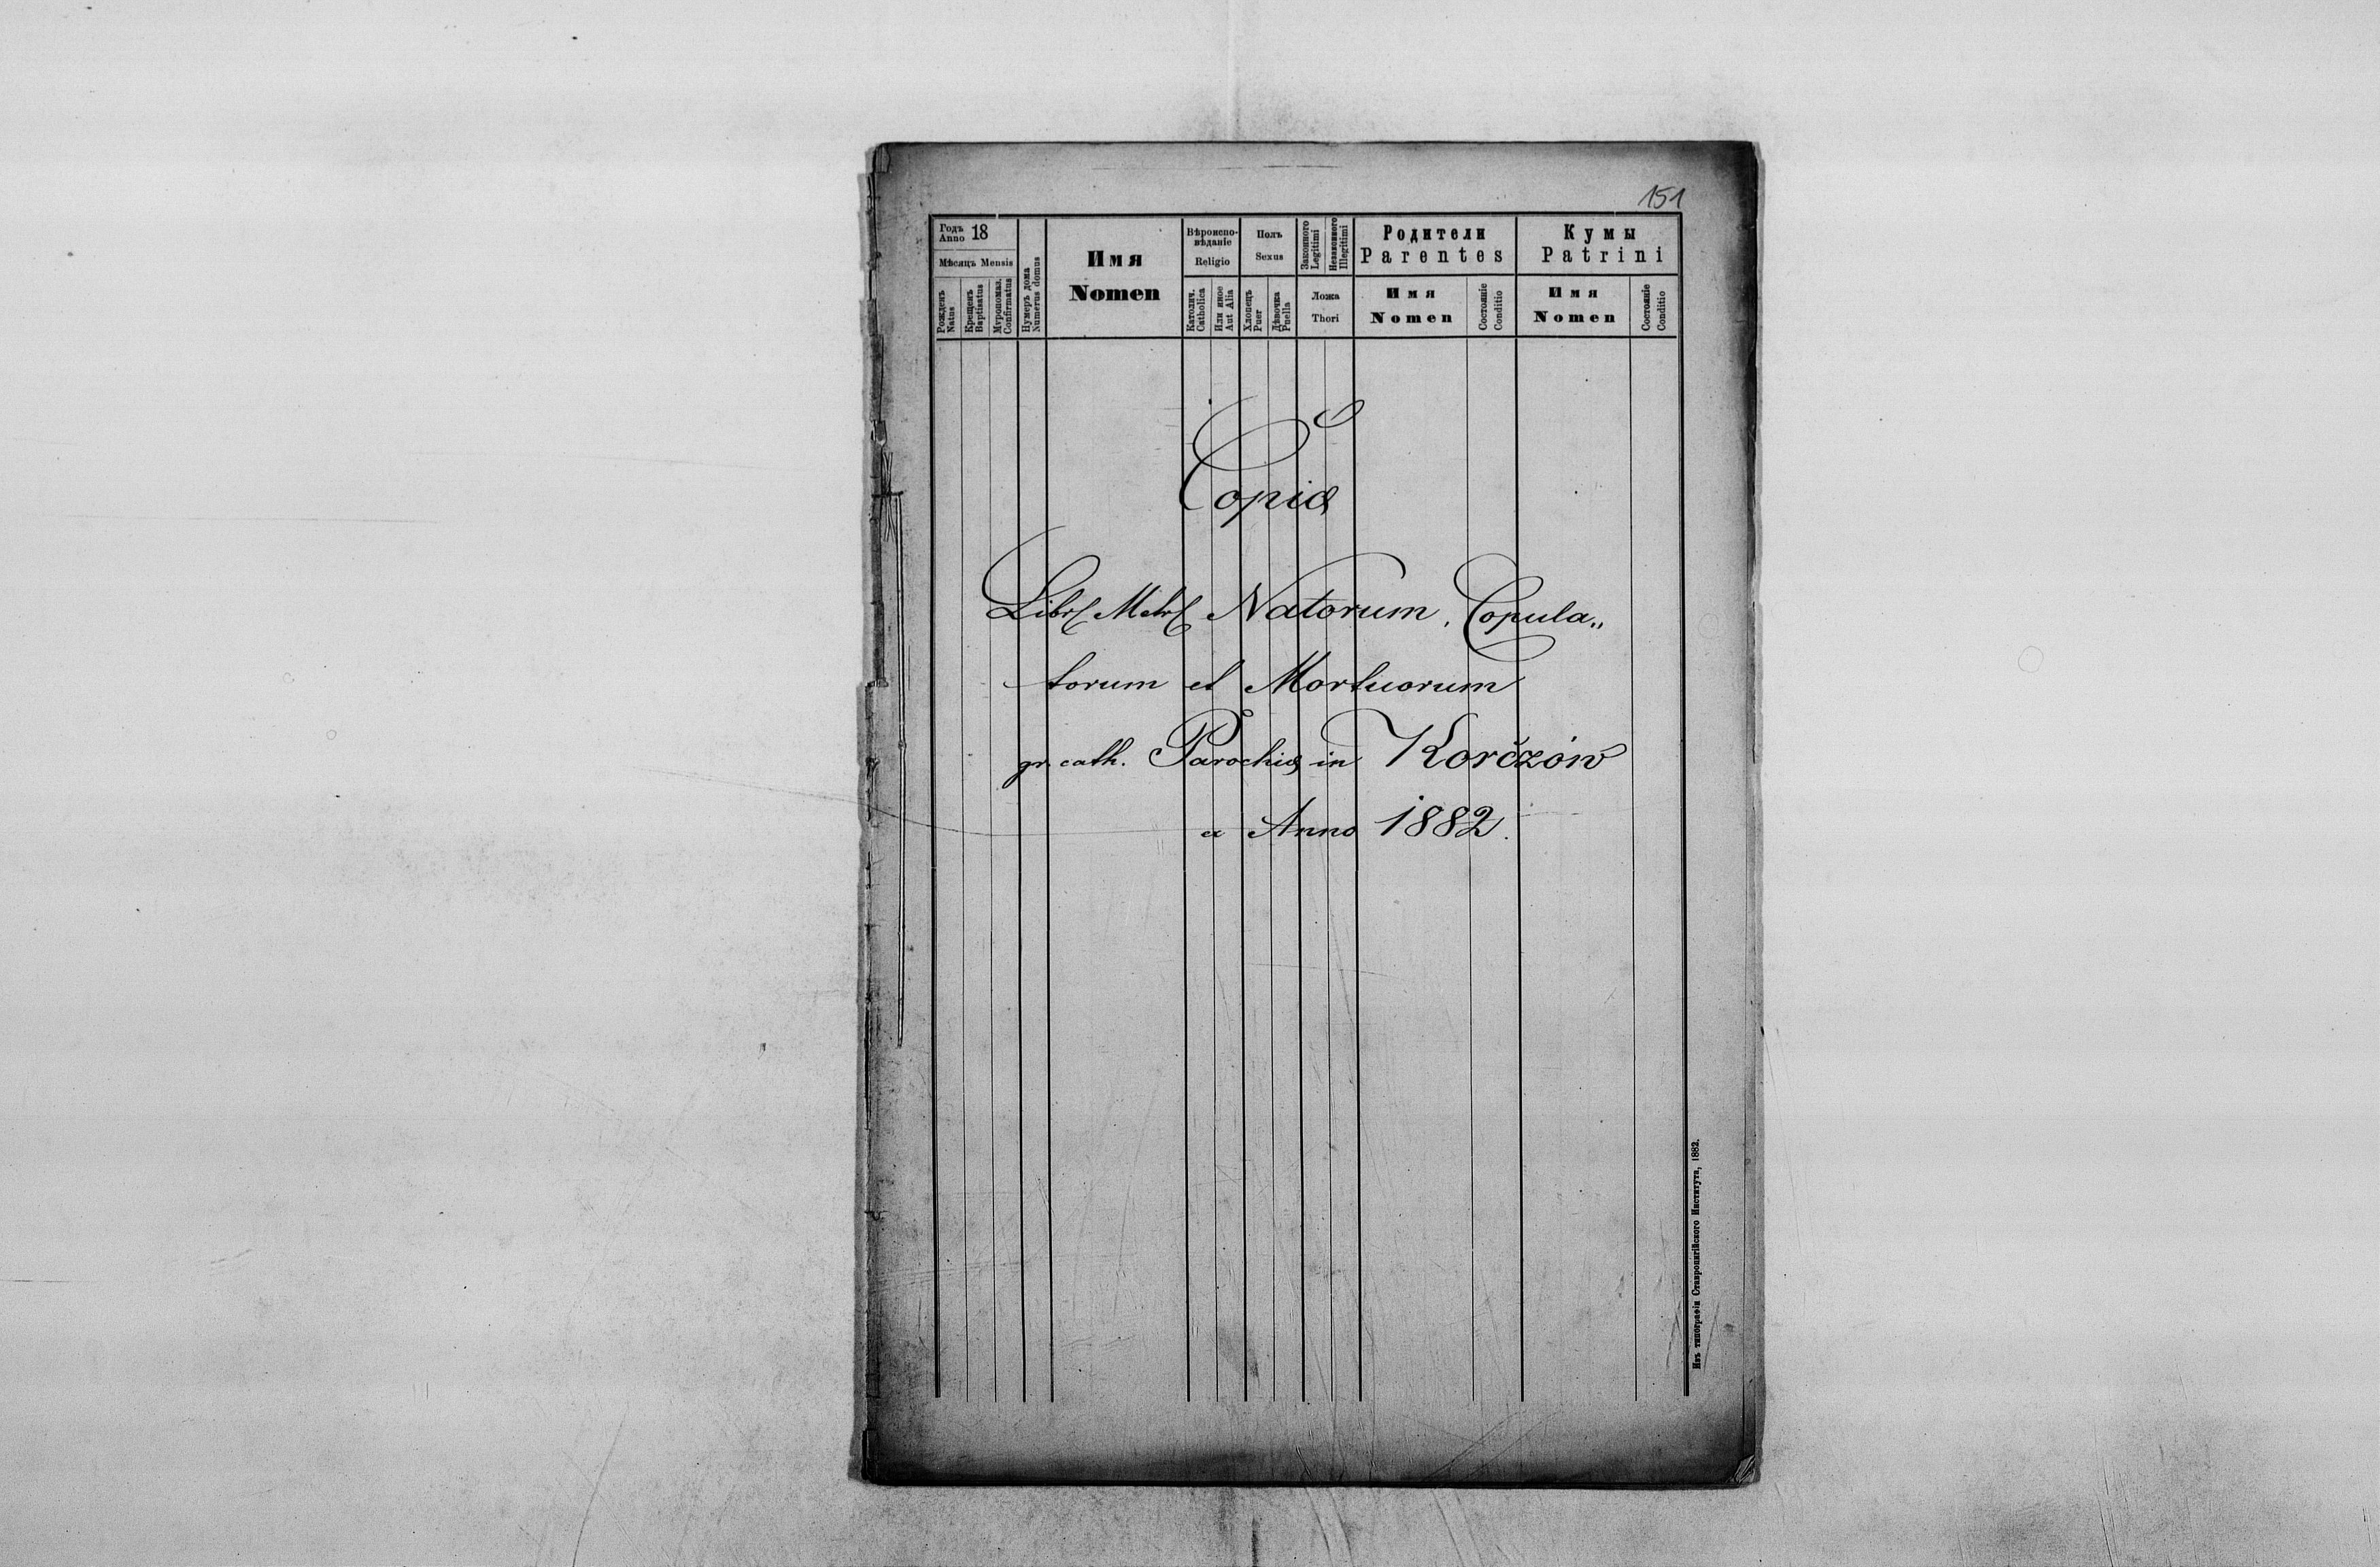 151
Годъ Anno 18
Мѣсяцъ Mensis
Рожденъ Natus
Крещенъ Baptisatus
Мѵропомаз. Confirmatus
Нумеръ дома Numerus domus
Имя
Nomen
Вѣроиспо-
вѣданіе
Religio
Католич. Catholica
Или иное Aut Alia
Полъ
Sexus
Хлопецъ Puer
Дѣвочка Puella
Законного Legitimi
Незаконного Illegitimi
Ложа
Thori
Родители
Parentes
Имя
Nomen
Состояніе Conditio
Кумы
Patrini
Имя
Nomen
Состояніе Conditio
Copia
Natorum, Copula„
torum et Mortuorum
gr. cath. Parochiæ in Korczów
Anno 1882.
Изъ типографіи Ставропигійского Института, 1882.